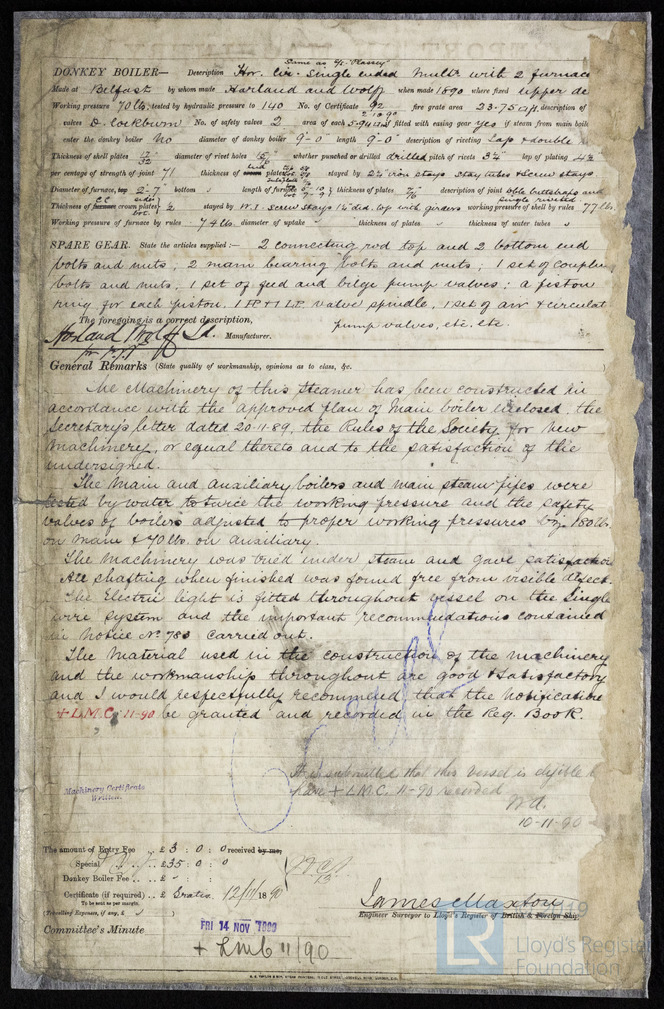 Same as S/S "Plassey"
DONKEY BOILER— Description Hor. Cir. Single ended Mult. with 2 furnace
Made at Belfast by whom made Harland and Wolff when made 1890 where fixed upper de
Working pressure 70 lb. tested by hydraulic pressure to 140 No. of Certificate 92 fire grate area 23.75 description of
valves D. Cockburn No. of safety valves 2 area of each 5.94 if fitted with easing gear yes if steam from main boil
enter the donkey boiler No diameter of donkey boiler 9'-0" length 9'-0" description of riveting Lap & double
Thickness of shell plates 17/32 diameter of rivet holes whether punched or drilled drilled pitch of rivets 3¼" lap of plating
per centage of strength of joint 71 thickness of end plates stayed by 2¼ iron stays stay tubes & screw stays
Diameter of furnace, top 2'-7" bottom length of furnace thickness of plates description of joint dble buttstraps and single riveted
Thickness of furnace crown plates stayed by W.I. screw stays 1¼" did. top with girders working pressure of shell by rules 77 lbs
Working pressure of furnace by rules 74 lb. diameter of uptake " thickness of plates " thickness of water tubes "
SPARE GEAR. State the articles supplied:— 2 connecting rod top and 2 bottom end
bolts and nuts; 2 main bearing bolts and nuts; 1 set of couplin
bolts and nuts. 1 set of feed and bilge pump valves: a piston
ring for each piston. 1 HP & 1 LP. valve spindle, 1 set of air & circulat
pump valves, etc. etc.
The foregoing is a correct description,
Harland & Wolff Ld. Manufacturer.
General Remarks (State quality of workmanship, opinions as to class, &c.
The Machinery of this Steamer has been constructed in
accordance with the approved plan of Main boiler enclosed, the
Secretary's letter dated 20.11.89, the Rules of the Society for new
Machinery, or equal thereto and to the satisfaction of the
undersigned.
The Main and Auxiliary boilers and main steam pipes were
tested by water to twice the working pressure and the safety
valves of boilers adjusted to proper working pressures viz. 180 lb.
on main & 70 lbs. on Auxiliary.
The Machinery was tried under steam and gave satisfaction
All shafting when finished was found free from visible defect.
The Electric light is fitted throughout vessel on the Single
wire system and the important recommendations contained
in Notice No 783 carried out.
The Material used in the construction of the machinery
and the workmanship throughout are good & satisfactory
and I would respectfully recommend that the Notification
+ L.M.C. 11-90 be granted and recorded in the Reg. Book.
It is submitted that this vessel is eligible t
have + L.M.C. 11-90 recorded
10-11-90
Machinery Certificate
Written.
The amount of Entry Fee .. £ 3 : 0 : 0 received by me,
Special .. £ 35 : 0 : 0
Donkey Boiler Fee .. £ " : :
Certificate (if required) .. £ Gratis 12/11/1890
To be sent as per margin.
(Travelling Expenses, if any, £ )
James Maxton
Engineer Surveyor to Lloyd's Register of British & Foreign Ship
Committee's Minute
FRI 14 NOV 1890
+ LMC 11/90
2019
LR
Lloyd's Registe
Foundation